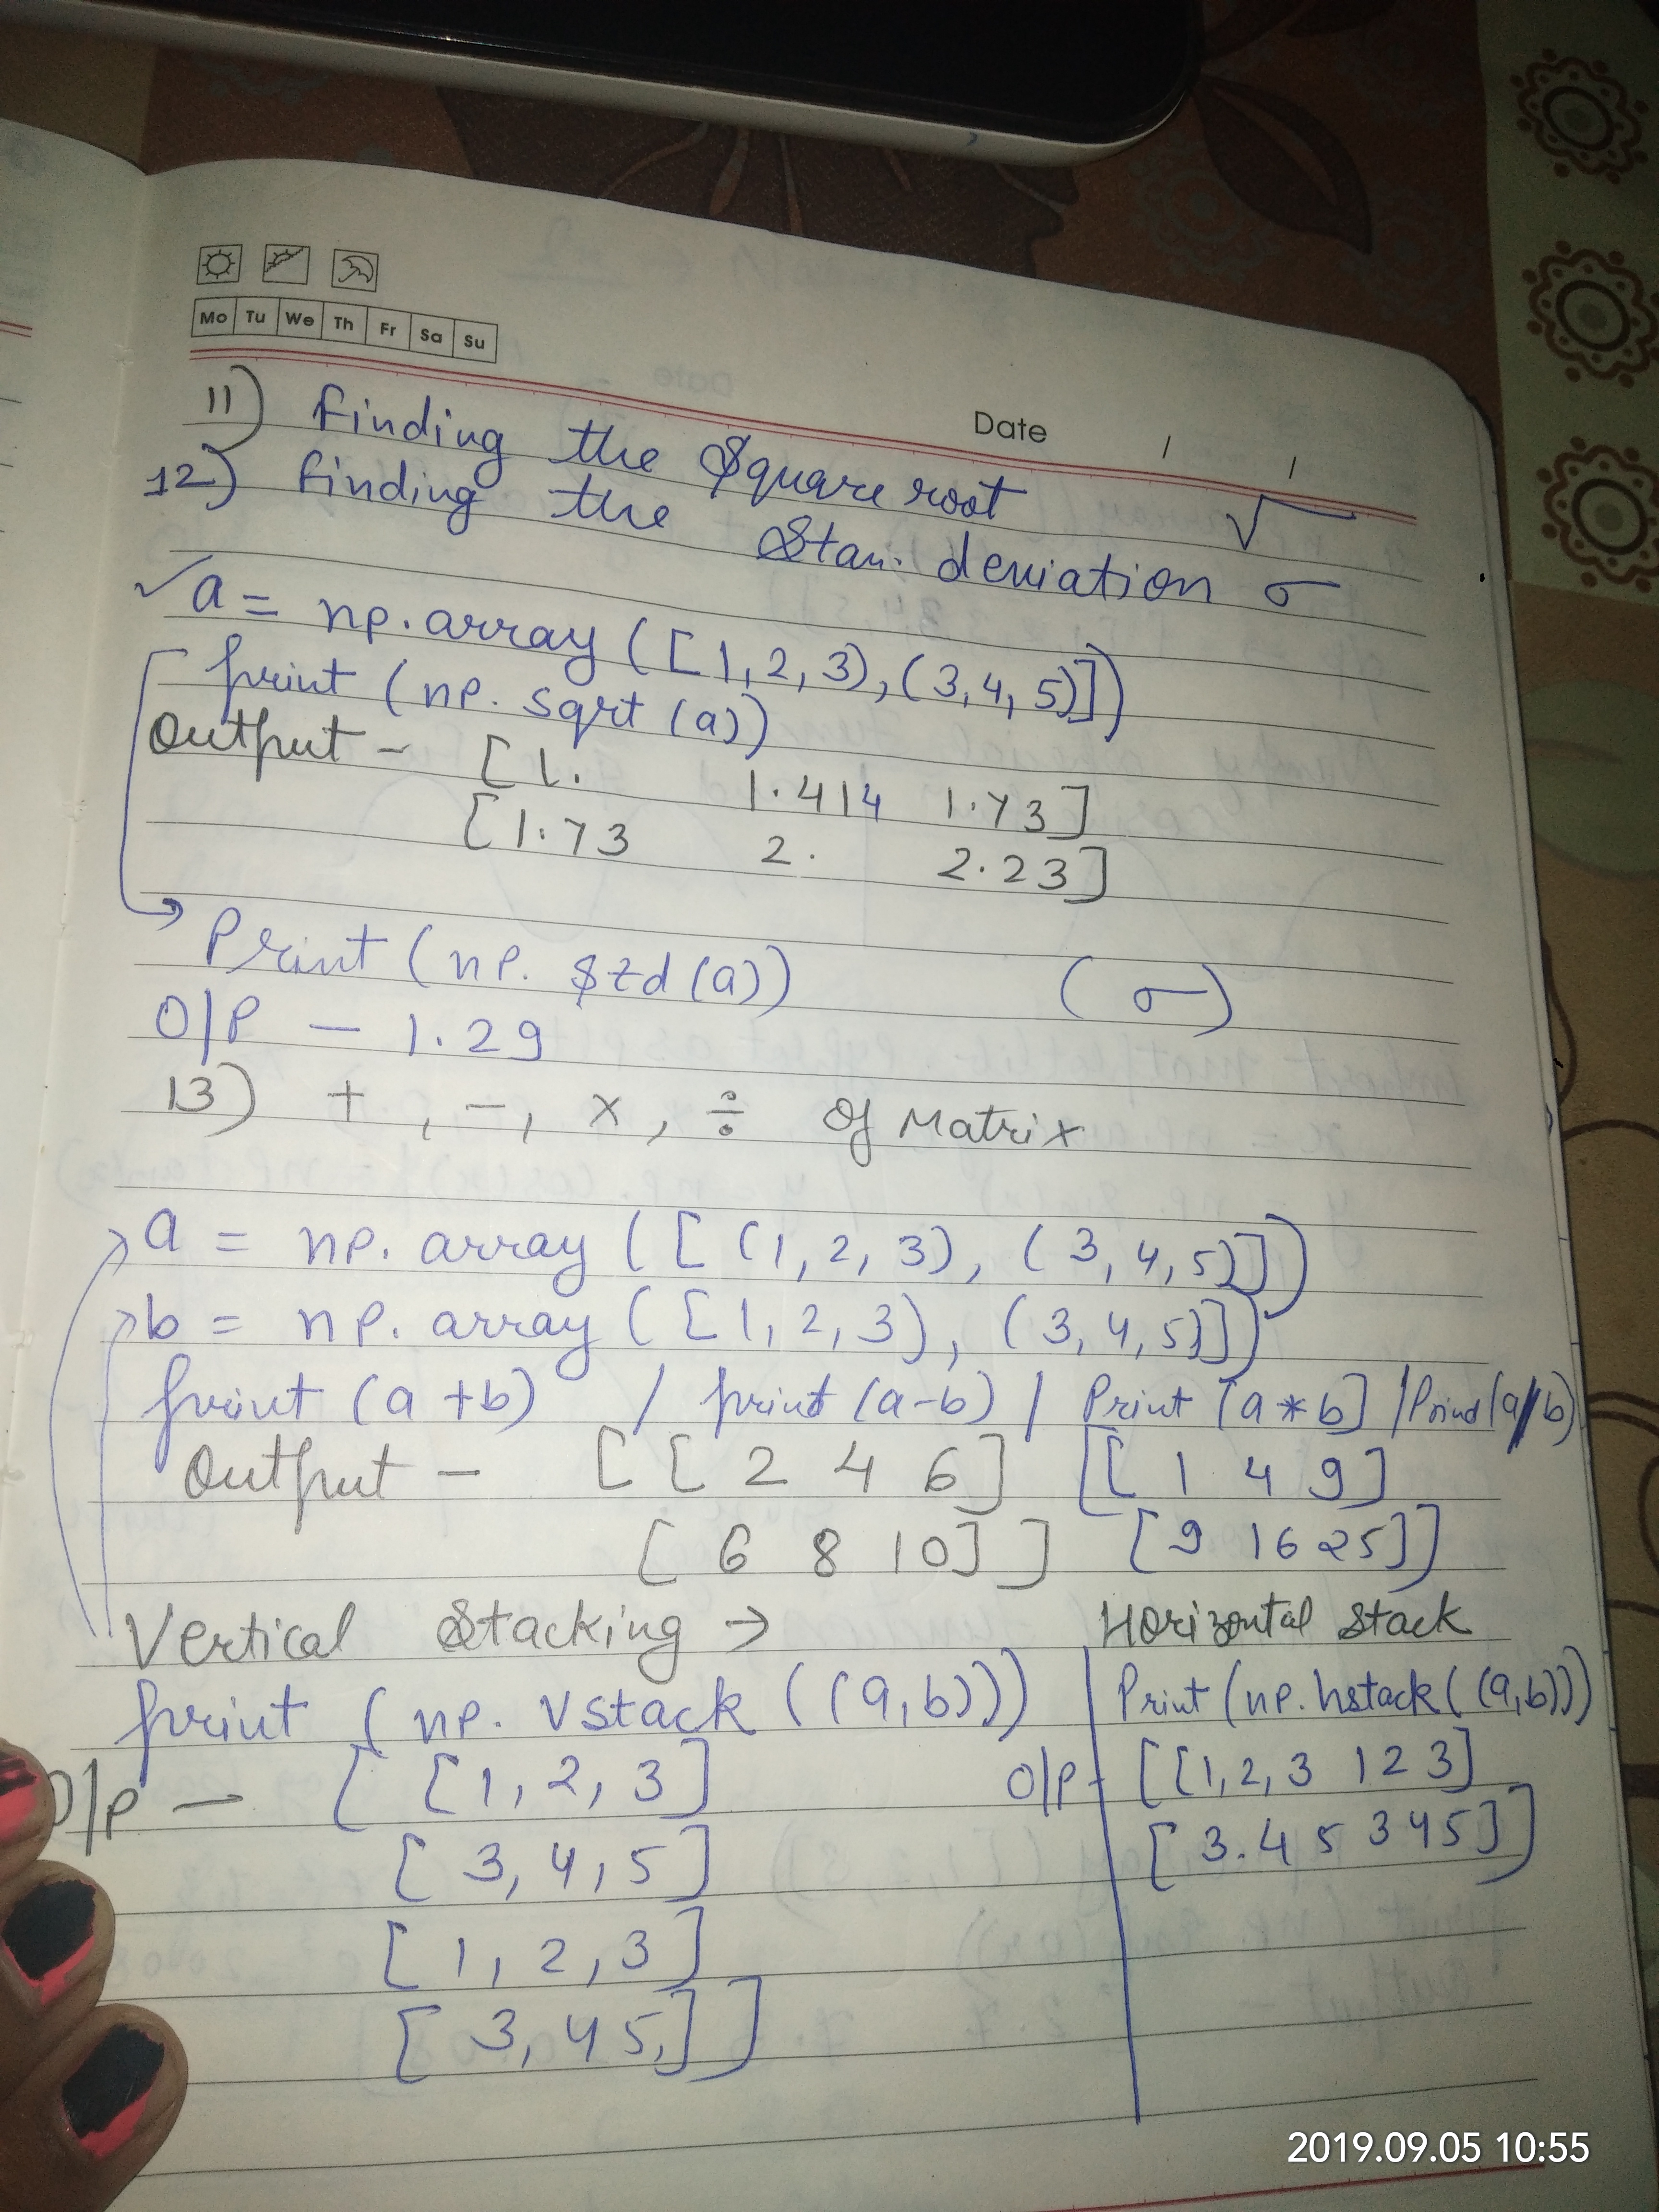 Mo Tu We Th Fr Sa Su
Date / /
11) Finding the Square root √
12) Finding the Stan. deviation σ
✓ a = np.array ([1,2,3),(3,4,5)])
print (np. sqrt (a))
Output - [1. 1.414 1.73]
[1.73 2. 2.23]
→ Print (np. std (a)) (σ)
O/P - 1.29
13) +, -, x, ÷ Of Matrix
→ a = np. array ([(1,2,3), (3,4,5)])
→ b = np. array ([1,2,3), (3,4,5)])
print (a+b) / print (a-b) / Print [a*b] / Prind (a/b)
Output - [[2 4 6] [[1 4 9]
[6 8 10]] [9 16 25]]
Vertical Stacking → Horizontal Stack
print (np. Vstack ((a,b))) Print (np. hstack ((a,b)))
O/P - [[1,2,3] O/P - [[1,2,3 1 2 3]
[3,4,5] [3.4 5 3 4 5]]
[1,2,3]
[3,4 5,]]
2019.09.05 10:55